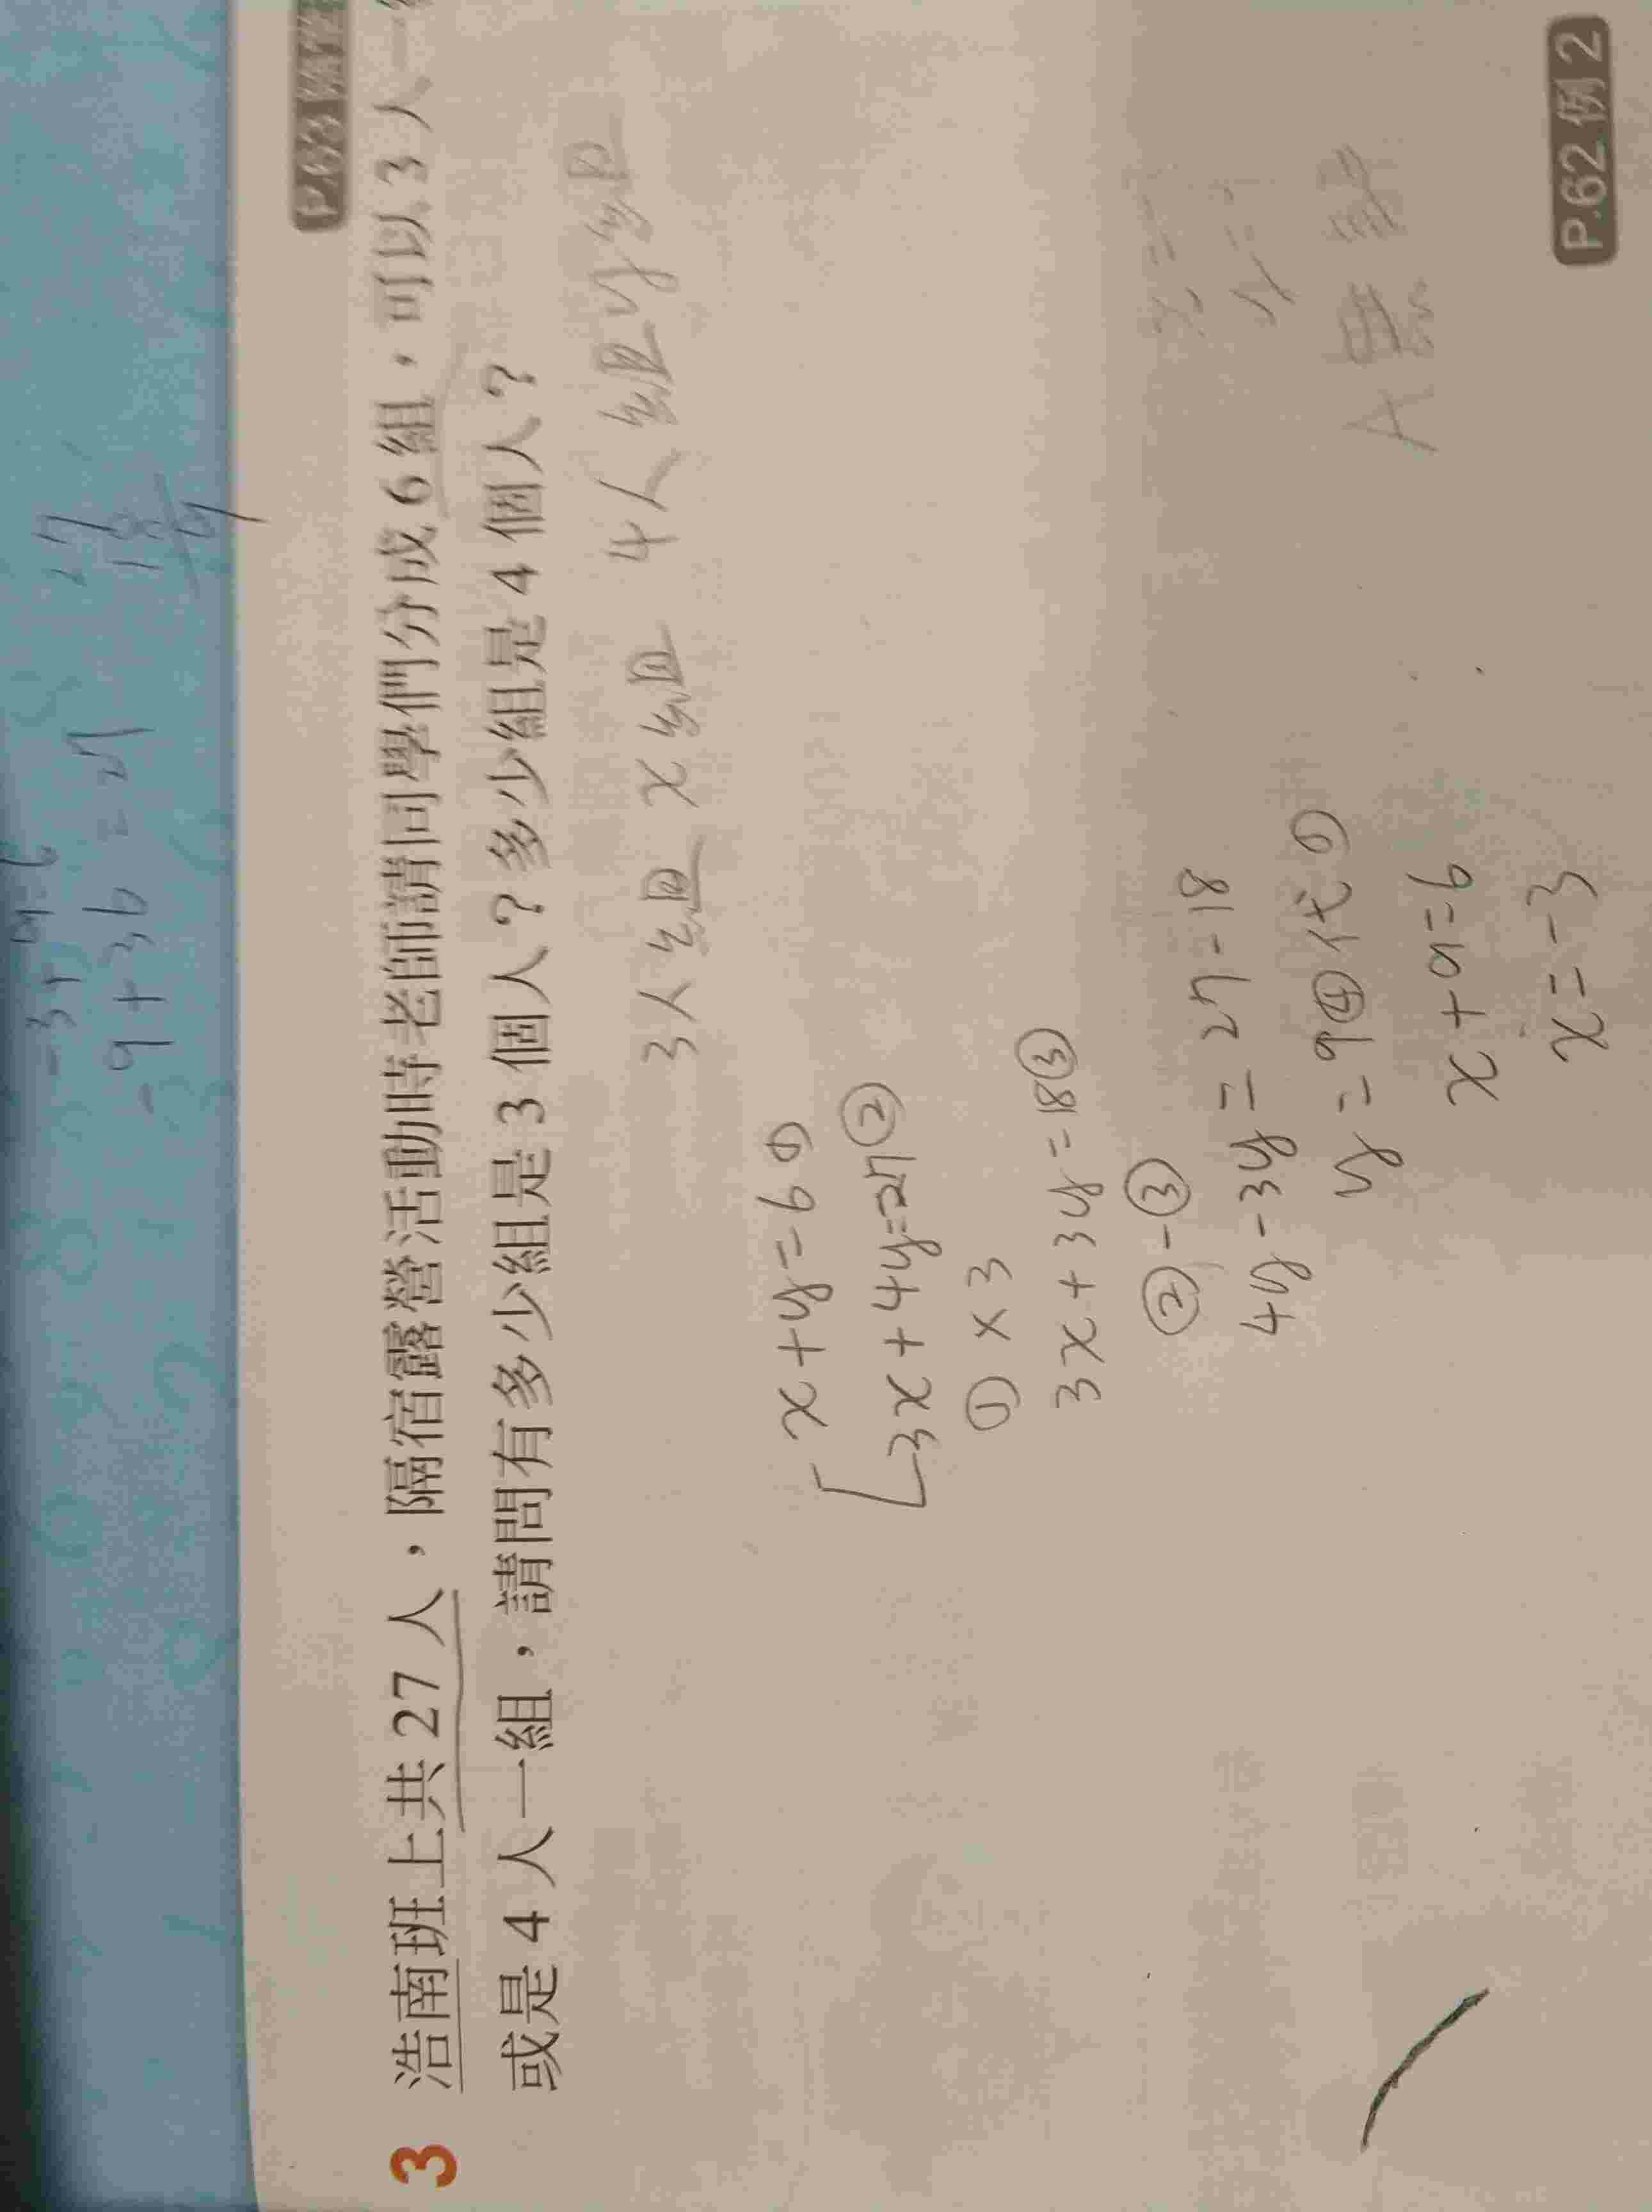 -3+9=6
-9+36=27
27
18
9
P.63 隨堂
3 浩南班上共 27 人，隔宿露營活動時老師請同學們分成 6 組，可以 3 人一
或是 4 人一組，請問有多少組是 3 個人？多少組是 4 個人？
3人組 x組 4人組 y組
x+y=6①
3x+4y=27②
①×3
3x+3y=18③
②-③
4y-3y=27-18
y=9④代①
x+9=6
x=-3
x=
y=
A無解
P.62 例 2